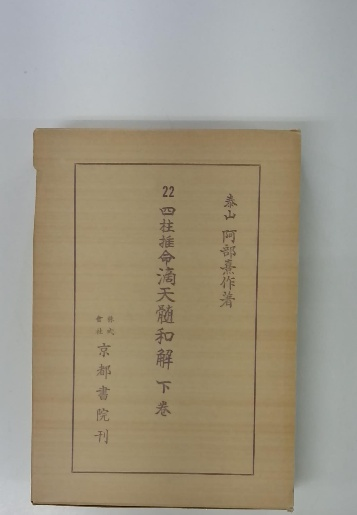 泰山 阿部熹作著
22 四柱推命滴天髄和解 下巻
株式会社 京都書院刊